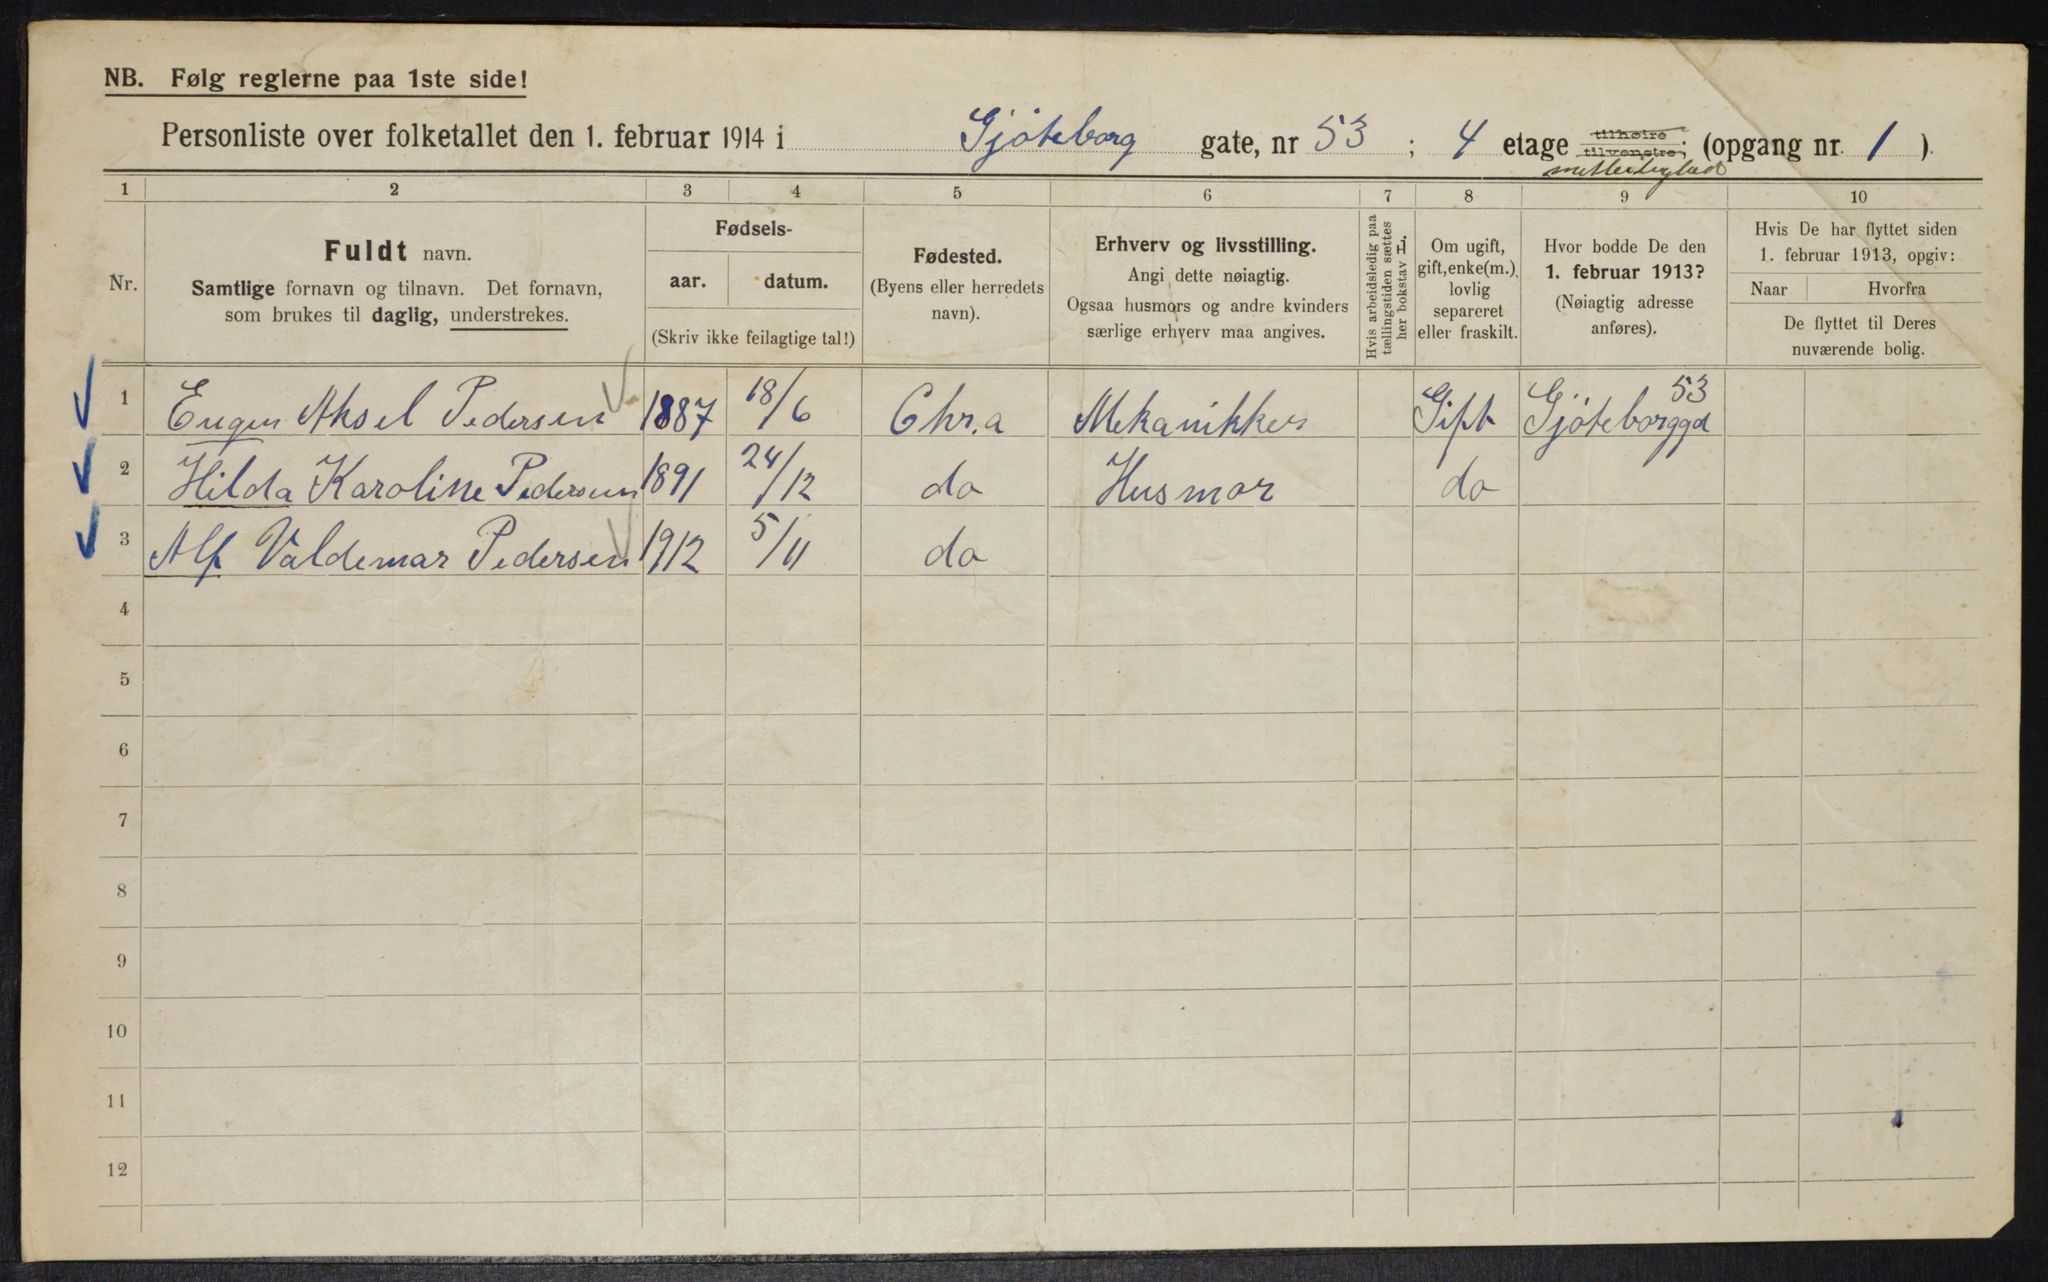 NB. Følg reglerne paa 1ste side!
Personliste over folketallet den 1. februar 1914 i Gjøteborg gate, nr 53 ; 4 etage tilhøire tilvenstre; (opgang nr. 1 ).
1 2 3 4 5 6 7 8 9 10
Nr.
Fuldt navn.
Samtlige fornavn og tilnavn. Det fornavn,
som brukes til daglig, understrekes.
Fødsels-
aar. datum.
(Skriv ikke feilagtige tal!)
Fødested.
(Byens eller herredets
navn).
Erhverv og livsstilling.
Angi dette nøiagtig.
Ogsaa husmors og andre kvinders
særlige erhverv maa angives.
Hvis arbeidsledig paa
tællingstiden sættes
her bokstav L.
Om ugift,
gift, enke(m.),
lovlig
separeret
eller fraskilt.
Hvor bodde De den
1. februar 1913?
(Nøiagtig adresse
anføres).
Hvis De har flyttet siden
1. februar 1913, opgiv:
Naar Hvorfra
De flyttet til Deres
nuværende bolig.
1 Eugen Aksel Pedersen 1887 18/6 Chr.a Mekanikker Gift Gjøteborggd 53
2 Hilda Karoline Pedersen 1891 24/12 do Husmor do
3 Alf Valdemar Pedersen 1912 5/11 do
4
5
6
7
8
9
10
11
12